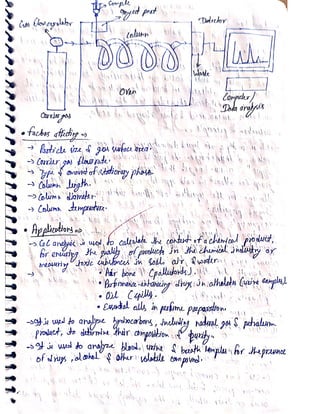 Sample
Gas flow regulator
inject port
Detector
Column
Waste
Oven
Computer/
Data analysis
Carrier gas
• Factors affecting →
→ Particle size & surface area.
→ Carrier gas flow rate.
→ Type & amount of stationary phase
→ Column length.
→ Column diameter.
→ Column temperature.
• Applications →
→ GC analysis is used to calculate the content of a chemical product,
for ensuring the quality of products in the chemical industry or
measuring toxic substances in soil, air & water.
→ • Air bone (pollutants).
• Performance-enhancing drugs in athletes (urine samples)
• Oil (spills).
• Essential oils in perfume preparation.
→ It is used to analyze hydrocarbons, including natural gas & petroleum
product, to determine their composition & purity.
→ It is used to analyze blood, urine & breath samples for the presence
of drugs, alcohol & other volatile compound.